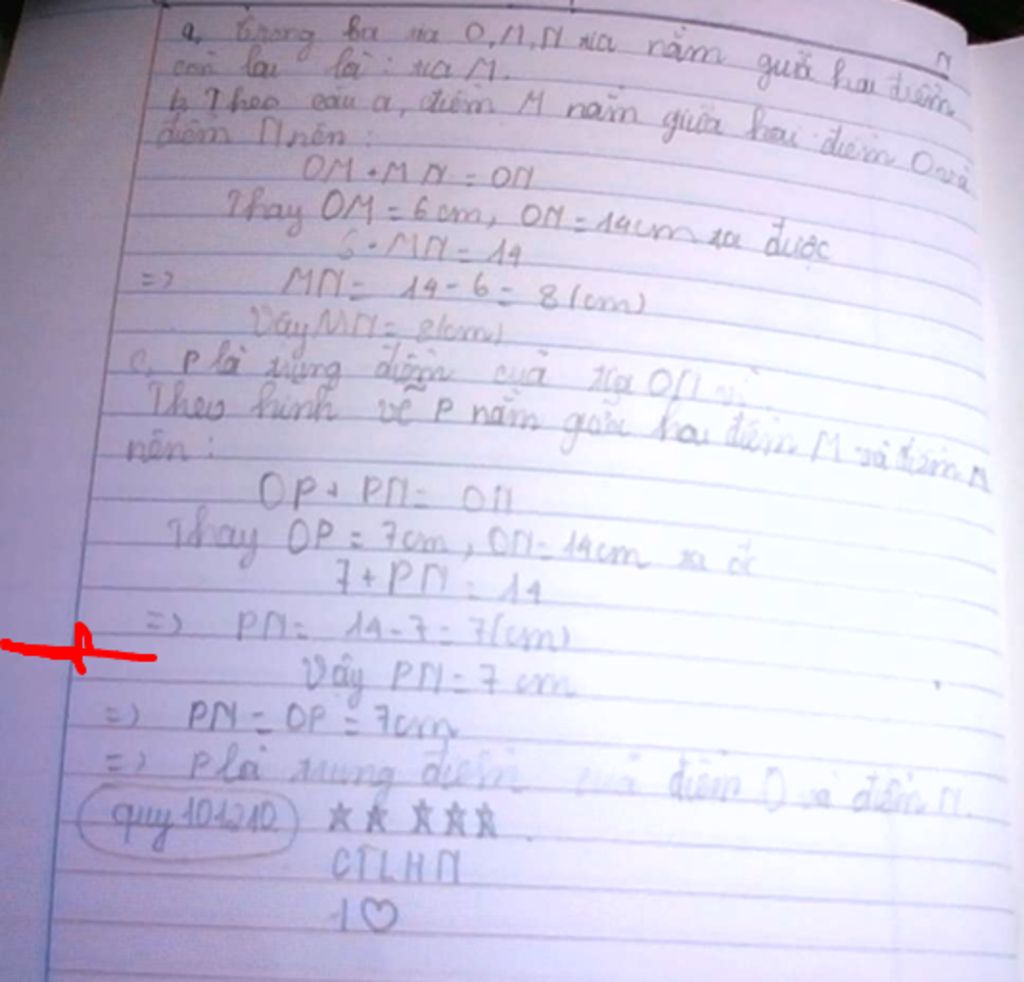 N
a, trong ba tia O, M, N tia nằm giữa hai điểm
còn lại là: tia M.
b, Theo câu a, điểm M nằm giữa hai điểm O và
điểm N nên:
OM + MN = ON
Thay OM = 6 cm, ON = 14cm ta được
6 + MN = 14
=> MN = 14 - 6 = 8 (cm)
Vậy MN = 8(cm)
c, P là trung điểm của tia ON vì
Theo hình vẽ P nằm giữa hai điểm M và điểm N
nên:
OP + PN = ON
Thay OP = 7cm, ON = 14cm ta đc
7 + PN = 14
=> PN = 14 - 7 = 7(cm)
Vậy PN = 7 cm
=> PN = OP = 7cm
=> P là trung điểm của điểm O và điểm N.
quy101210 ☆☆☆☆☆
CTLHN
1♡